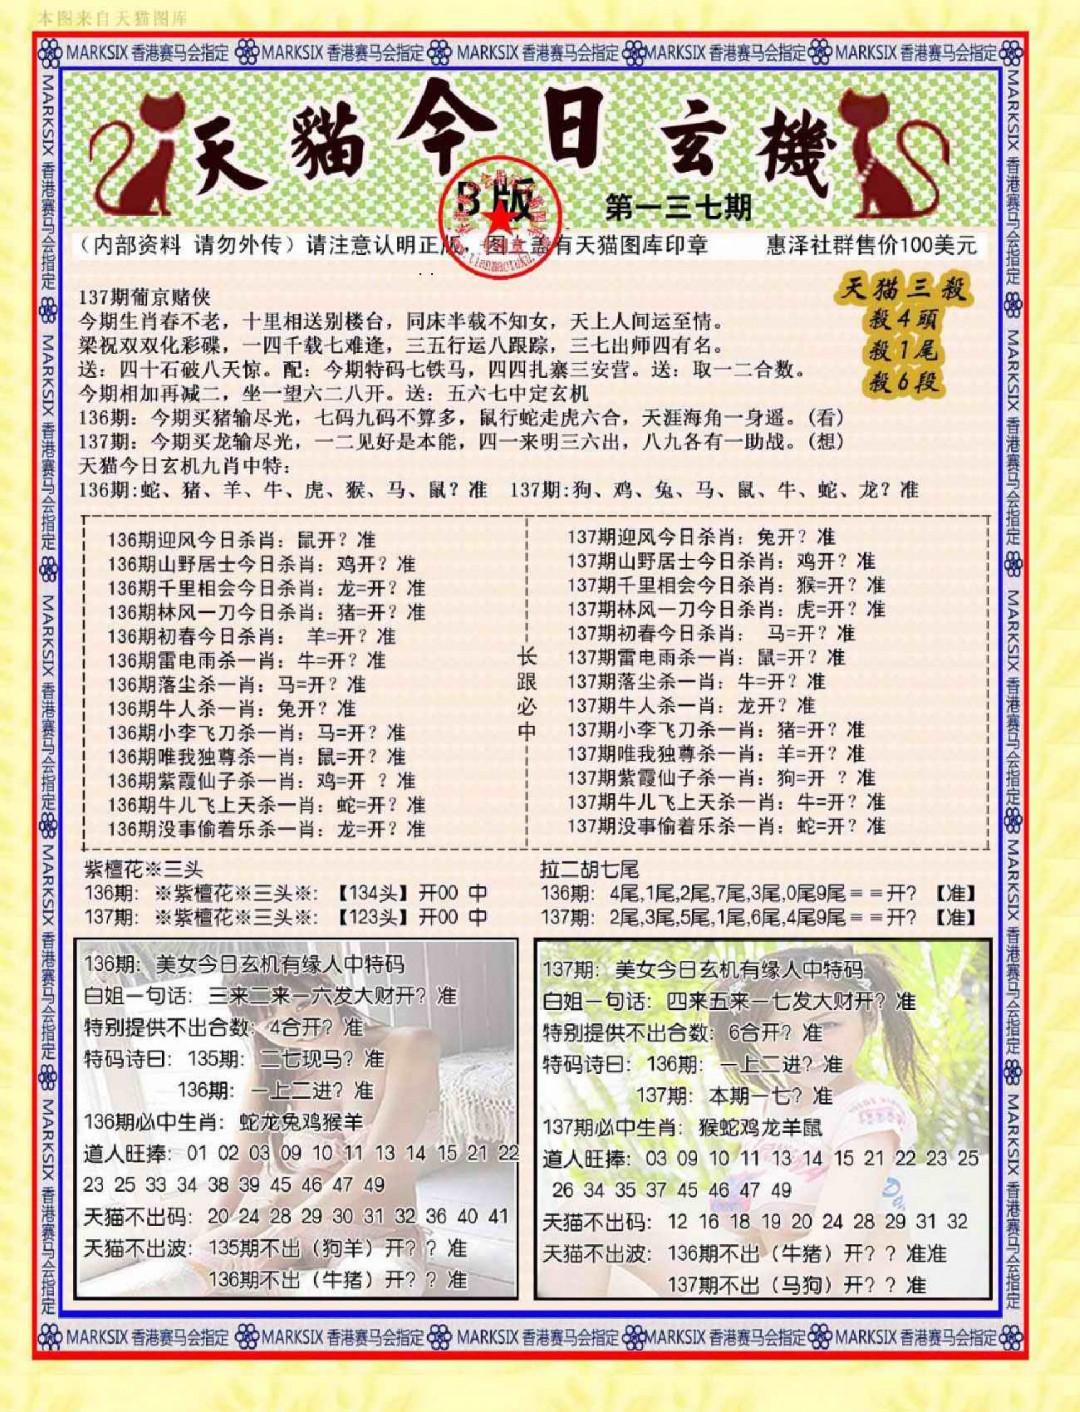 本图来自天猫图库
MARKSIX 香港赛马会指定 MARKSIX 香港赛马会指定 MARKSIX 香港赛马会指定 MARKSIX 香港赛马会指定 MARKSIX 香港赛马会指定
天貓今日玄機
B版
第一三七期
（内部资料 请勿外传）请注意认明正版，图上盖有天猫图库印章 惠泽社群售价100美元
天猫三殺
殺4頭
殺1尾
殺6段
137期葡京赌侠
今期生肖春不老，十里相送别楼台，同床半载不知女，天上人间运至情。
梁祝双双化彩碟，一四千载七难逢，三五行运八跟踪，三七出师四有名。
送：四十石破八天惊。配：今期特码七铁马，四四扎寨三安营。送：取一二合数。
今期相加再减二，坐一望六二八开。送：五六七中定玄机
136期：今期买猪输尽光，七码九码不算多，鼠行蛇走虎六合，天涯海角一身遥。(看)
137期：今期买龙输尽光，一二见好是本能，四一来明三六出，八九各有一助战。(想)
天猫今日玄机九肖中特：
136期:蛇、猪、羊、牛、虎、猴、马、鼠？准 137期:狗、鸡、兔、马、鼠、牛、蛇、龙？准
136期迎风今日杀肖：鼠开？准
136期山野居士今日杀肖：鸡开？准
136期千里相会今日杀肖：龙=开？准
136期林风一刀今日杀肖：猪=开？准
136期初春今日杀肖： 羊=开？准
136期雷电雨杀一肖：牛=开？准
136期落尘杀一肖：马=开？准
136期牛人杀一肖：兔开？准
136期小李飞刀杀一肖：马=开？准
136期唯我独尊杀一肖：鼠=开？准
136期紫霞仙子杀一肖：鸡=开 ？准
136期牛儿飞上天杀一肖：蛇=开？准
136期没事偷着乐杀一肖：龙=开？准
长跟必中
137期迎风今日杀肖：兔开？准
137期山野居士今日杀肖：鸡开？准
137期千里相会今日杀肖：猴=开？准
137期林风一刀今日杀肖：虎=开？准
137期初春今日杀肖： 马=开？准
137期雷电雨杀一肖：鼠=开？准
137期落尘杀一肖：牛=开？准
137期牛人杀一肖：龙开？准
137期小李飞刀杀一肖：猪=开？准
137期唯我独尊杀一肖：羊=开？准
137期紫霞仙子杀一肖：狗=开 ？准
137期牛儿飞上天杀一肖：牛=开？准
137期没事偷着乐杀一肖：蛇=开？准
紫檀花※三头
136期：※紫檀花※三头※：【134头】开00 中
137期：※紫檀花※三头※：【123头】开00 中
拉二胡七尾
136期：4尾,1尾,2尾,7尾,3尾,0尾9尾＝＝开？【准】
137期：2尾,3尾,5尾,1尾,6尾,4尾9尾＝＝开？【准】
136期：美女今日玄机有缘人中特码
白姐一句话：三来二来一六发大财开？准
特别提供不出合数：4合开？准
特码诗曰：135期：二七现马？准
136期：一上二进？准
136期必中生肖：蛇龙兔鸡猴羊
道人旺捧：01 02 03 09 10 11 13 14 15 21 22
23 25 33 34 38 39 45 46 47 49
天猫不出码：20 24 28 29 30 31 32 36 40 41
天猫不出波：135期不出（狗羊）开？？准
136期不出（牛猪）开？？准
137期：美女今日玄机有缘人中特码
白姐一句话：四来五来一七发大财开？准
特别提供不出合数：6合开？准
特码诗曰：136期：一上二进？准
137期：本期一七？准
137期必中生肖：猴蛇鸡龙羊鼠
道人旺捧：03 09 10 11 13 14 15 21 22 23 25
26 34 35 37 45 46 47 49
天猫不出码：12 16 18 19 20 24 28 29 31 32
天猫不出波：136期不出（牛猪）开？？准准
137期不出（马狗）开？？准
MARKSIX 香港赛马会指定 MARKSIX 香港赛马会指定 MARKSIX 香港赛马会指定 MARKSIX 香港赛马会指定 MARKSIX 香港赛马会指定
MARKSIX 香港赛马会指定 MARKSIX 香港赛马会指定 MARKSIX 香港赛马会指定 MARKSIX 香港赛马会指定 MARKSIX 香港赛马会指定
MARKSIX 香港赛马会指定 MARKSIX 香港赛马会指定 MARKSIX 香港赛马会指定 MARKSIX 香港赛马会指定 MARKSIX 香港赛马会指定